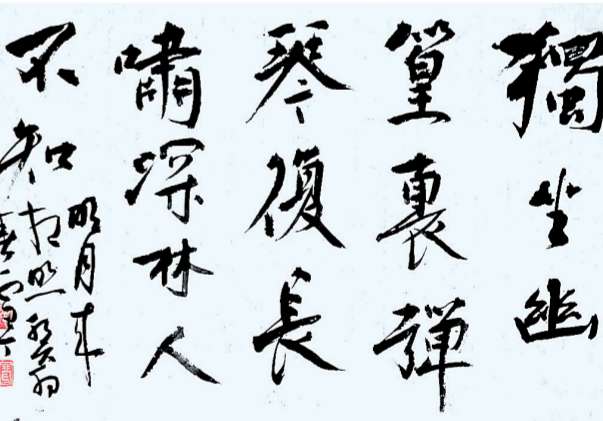 獨坐幽
篁裏彈
琴復長
嘯深林人
不知
明月来
相照